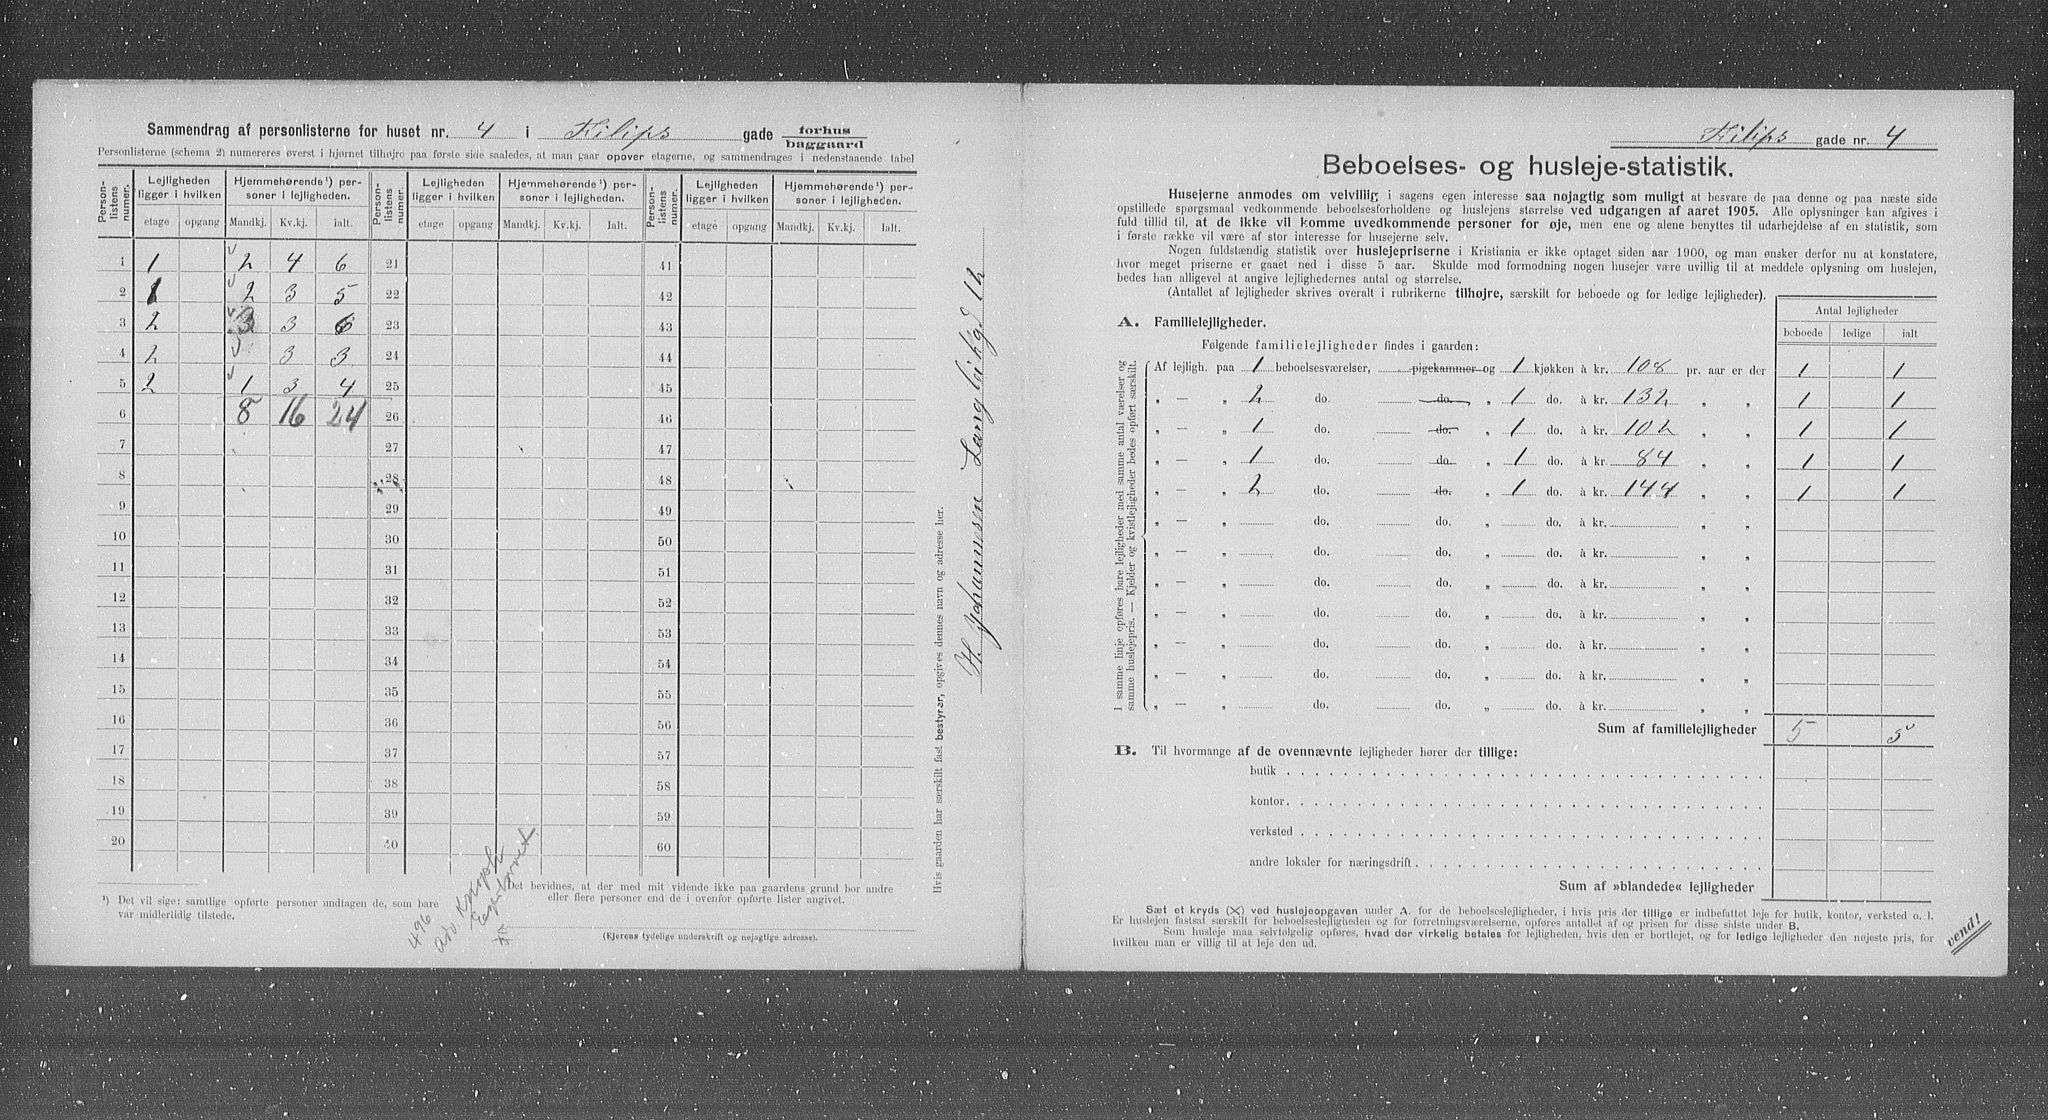 Sammendrag af personlisterne for huset nr. 4 i Filips gade forhus baggaard
Personlisterne (schema 2) numereres øverst i hjørnet tilhøjre paa første side saaledes, at man gaar opover etagerne, og sammendrages i nedenstaaende tabel
Person-listens numer. Lejligheden ligger i hvilken Hjemmehørende¹) personer i lejligheden. Person-listens numer. Lejligheden ligger i hvilken Hjemmehørende¹) personer i lejligheden. Person-listens numer. Lejligheden ligger i hvilken Hjemmehørende¹) personer i lejligheden.
etage opgang Mandkj. Kv.kj. ialt. etage opgang Mandkj. Kv.kj. Ialt. etage opgang Mandkj. Kv.kj. Ialt.
1 1 2 4 6 21 41
2 1 2 3 5 22 42
3 2 3 3 6 23 43
4 2 3 3 24 44
5 2 1 3 4 25 45
6 8 16 24 26 46
7 27 47
8 28 48
9 29 49
10 30 50
11 31 51
12 32 52
13 33 53
14 34 54
15 35 55
16 36 56
17 37 57
18 38 58
19 39 59
20 40 60
¹) Det vil sige: samtlige opførte personer undtagen de, som bare
var midlertidig tilstede.
496
Det bevidnes, at der med mit vidende ikke paa gaardens grund bor andre
eller flere personer end de i ovenfor opførte lister angivet.
(Ejerens tydelige underskrift og nøjagtige adresse).
Hvis gaarden har særskilt fast bestyrer, opgives dennes navn og adresse her.
H. Johannesen
Filips gade nr. 4
Beboelses- og husleje-statistik.
Husejerne anmodes om velvillig i sagens egen interesse saa nøjagtig som muligt at besvare de paa denne og paa næste side
opstillede spørgsmaal vedkommende beboelsesforholdene og huslejens størrelse ved udgangen af aaret 1905. Alle oplysninger kan afgives i
fuld tillid til, at de ikke vil komme uvedkommende personer for øje, men ene og alene benyttes til udarbejdelse af en statistik, som
i første række vil være af stor interesse for husejerne selv.
Nogen fuldstændig statistik over huslejepriserne i Kristiania er ikke optaget siden aar 1900, og man ønsker derfor nu at konstatere,
hvor meget priserne er gaaet ned i disse 5 aar. Skulde mod formodning nogen husejer være uvillig til at meddele oplysning om huslejen,
bedes han alligevel at angive lejlighedernes antal og størrelse.
(Antallet af lejligheder skrives overalt i rubrikerne tilhøjre, særskilt for beboede og for ledige lejligheder).
Antal lejligheder
beboede ledige ialt
A. Familielejligheder.
Følgende familielejligheder findes i gaarden:
I samme linje opføres bare lejligheder med samme antal værelser og
samme huslejepris. — Kjelder og kvistlejligheder bedes opført særskilt.
Af lejligh. paa 1 beboelsesværelser, pigekammer og 1 kjøkken à kr. 108 pr. aar er der 1 1
„ — „ 2 do. do. „ 1 do. à kr. 132 „ „ 1 1
„ — „ 1 do. do. „ 1 do. à kr. 102 „ „ 1 1
„ — „ 1 do. do. „ 1 do. à kr. 84 „ „ 1 1
„ — „ 2 do. do. „ 1 do. à kr. 144 „ „ 1 1
„ — „ do. do. „ do. à kr. „ „
„ — „ do. do. „ do. à kr. „ „
„ — „ do. do. „ do. à kr. „ „
„ — „ do. do. „ do. à kr. „ „
„ — „ do. do. „ do. à kr. „ „
„ — „ do. do. „ do. à kr. „ „
„ — „ do. do. „ do. à kr. „ „
Sum af familielejligheder 5 5
B. Til hvormange af de ovennævnte lejligheder hører der tillige:
butik
kontor
verksted
andre lokaler for næringsdrift
Sum af »blandede« lejligheder
Sæt et kryds (X) ved huslejeopgaven under A. for de beboelseslejligheder, i hvis pris der tillige er indbefattet leje for butik, kontor, verksted o. l.
Er huslejen fastsat særskilt for beboelseslejligheden og for forretningsværelserne, opføres antallet af og prisen for disse sidste under B.
Som husleje maa selvfølgelig opføres, hvad der virkelig betales for lejligheden, hvis den er bortlejet, og for ledige lejligheder den nøjeste pris, for
hvilken man er villig til at leje den ud.
vend!